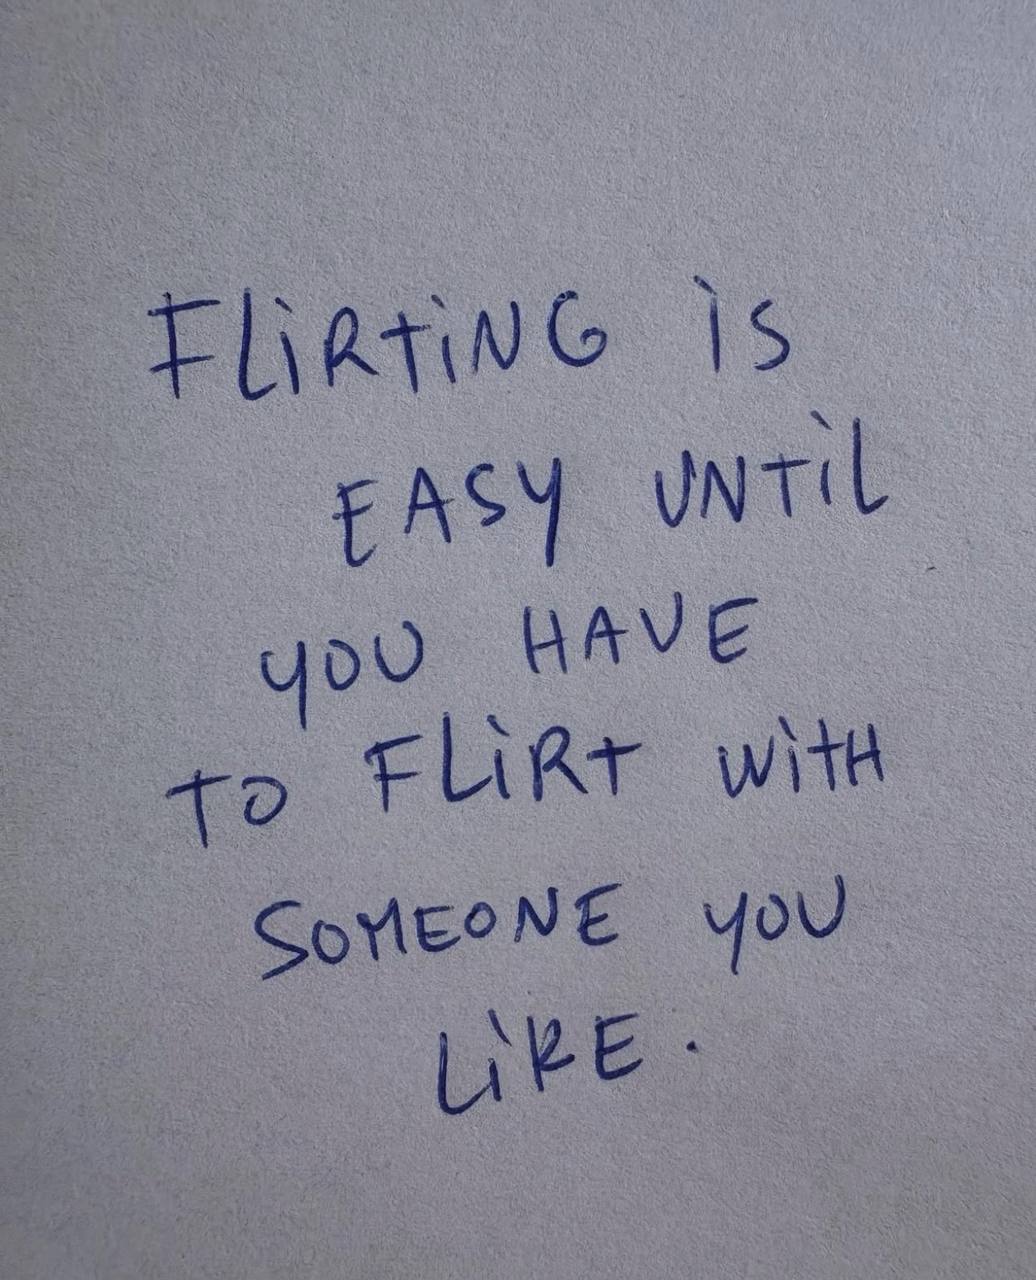 FLiRTiNG is
EASY UNTiL
YOU HAVE
TO FLiRT WiTH
SOMEONE YOU
LiKE.